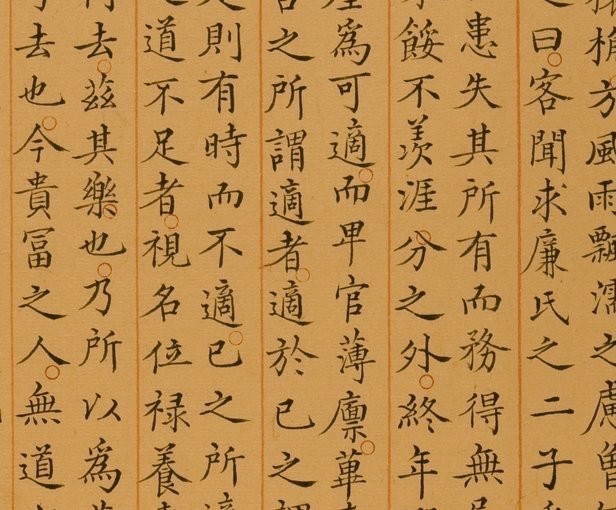 桷方風雨飄濡之慮曾
曰客聞求廉氏之二子
患失其所有而務得無
餒不羨涯分之外終年
爲可適而卑官薄廩蓽
之所謂適者適於已之
則有時而不適已之所
道不足者視名位禄養
去茲其樂也乃所以爲
去也今貴冨之人無道